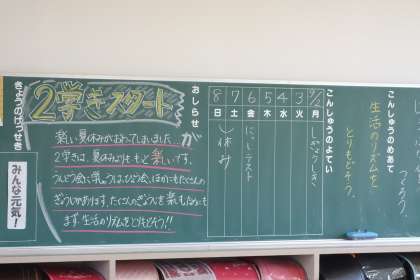 つくろう。
こんしゅうのめあて
生活のリズムを
とりもどそう。
こんしゅうのよてい
9/2 月 しぎょうしき
3 火
4 水
5 木
6 金 テスト
7 土
8 日 休み
おしらせ
2学きスタート
楽しい夏休みがおわってしまいました…が
2学きは、夏休みよりももっと楽しいです。
うんどう会に学しゅうはっぴょう会、ほかにもたくさんの
ぎょうじがあります。たくさんのぎょうじを楽しむためにも
まず、生活のリズムをとりもどそう!!
きょうのけっせき
みんな元気!